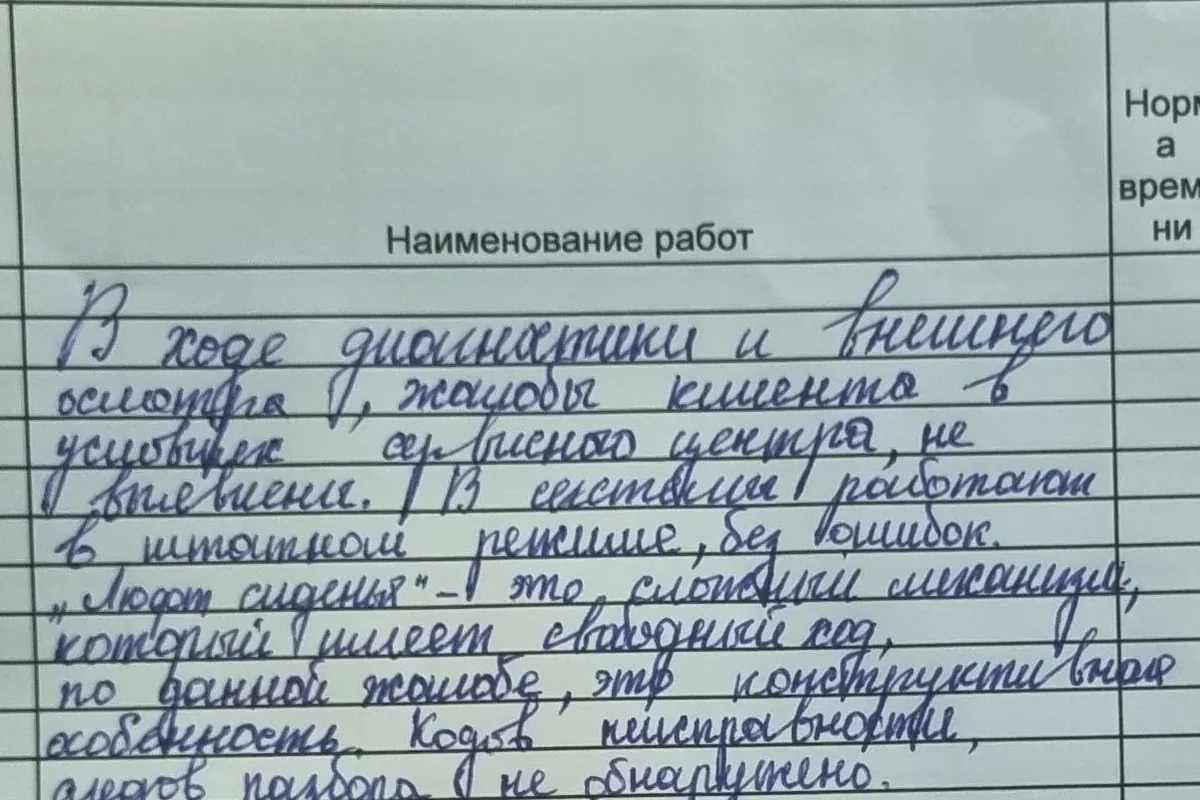 Наименование работ
Норм
а
врем
ни
В ходе диагностики и внешнего
осмотра, жалобы клиента в
условиях сервисного центра, не
выявлены. Все системы работают
в штатном режиме, без ошибок.
„Люфт сиденья" - это сложный механизм,
который имеет свободный ход,
по данной жалобе, это конструктивная
особенность. Кодов неисправности,
следов разбора не обнаружено.